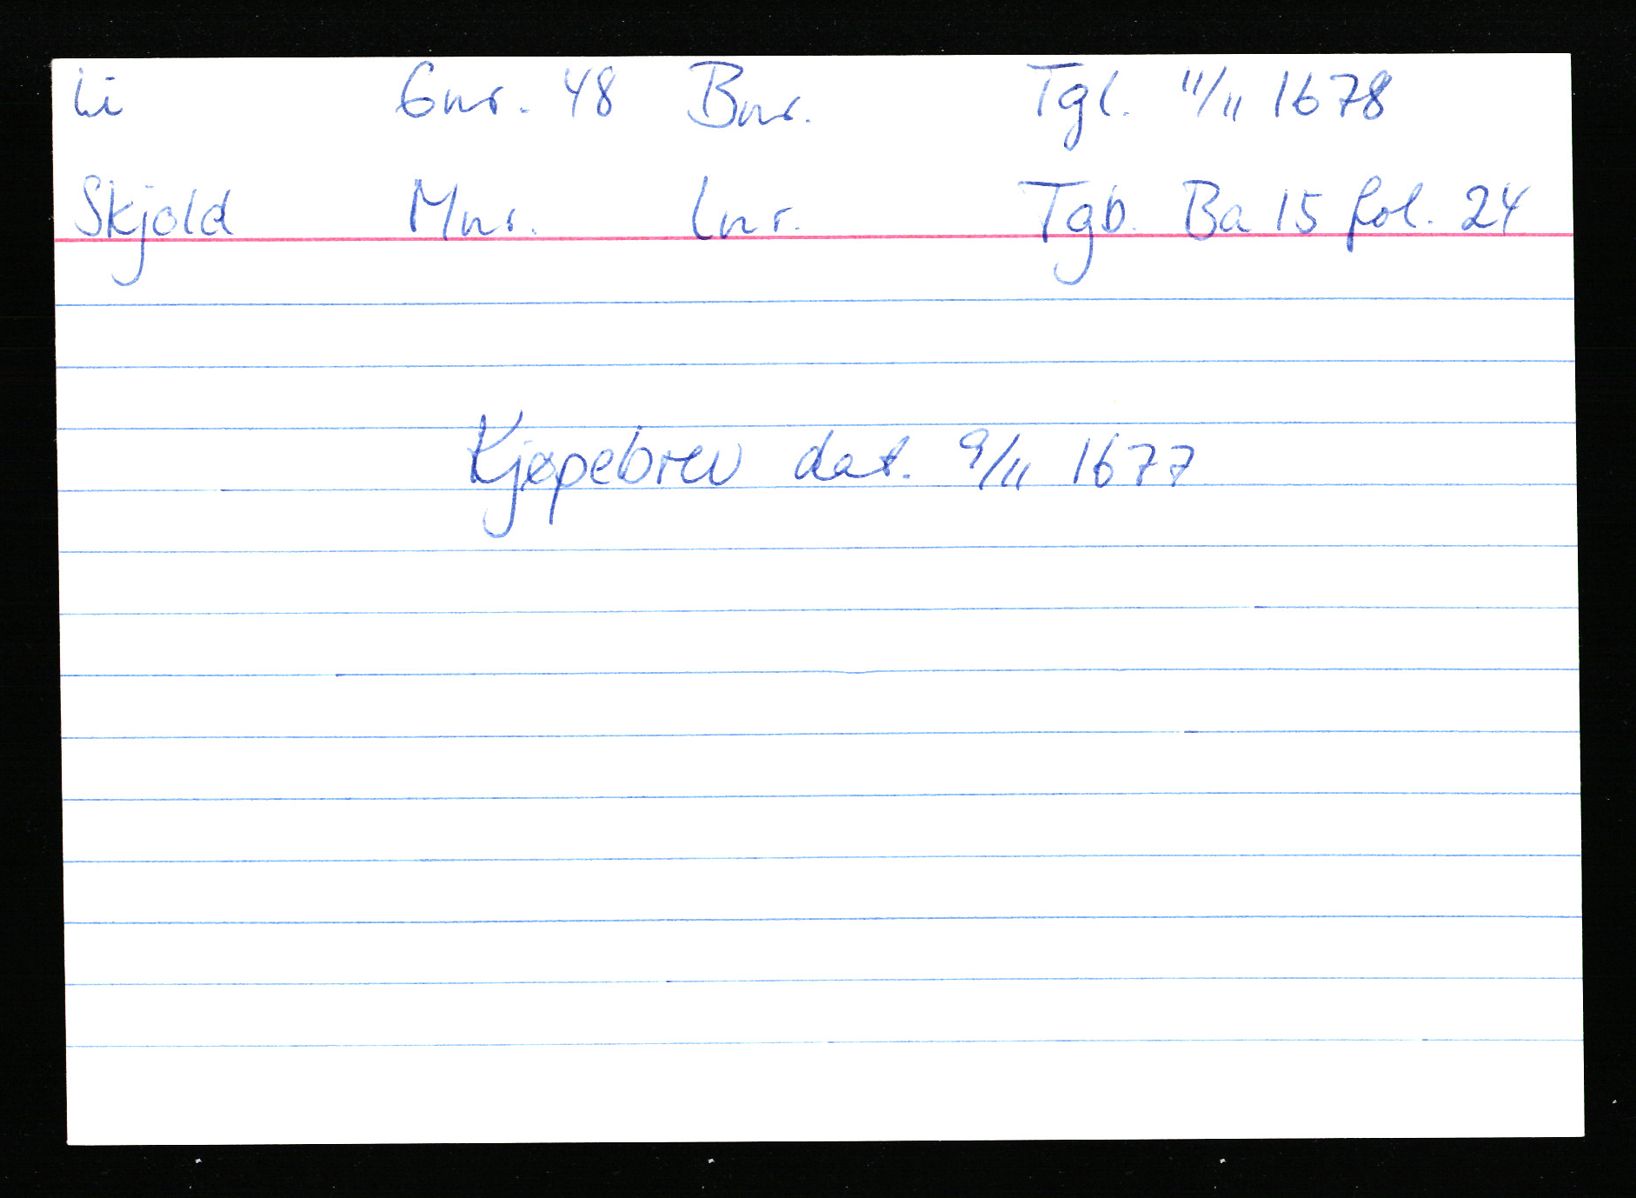 Li Gnr. 48 Bnr. Tgl. 11/11 1678
Skjold Mnr. Lnr. Tgb. Ba 15 fol. 24
Kjøpebrev dat. 9/11 1677